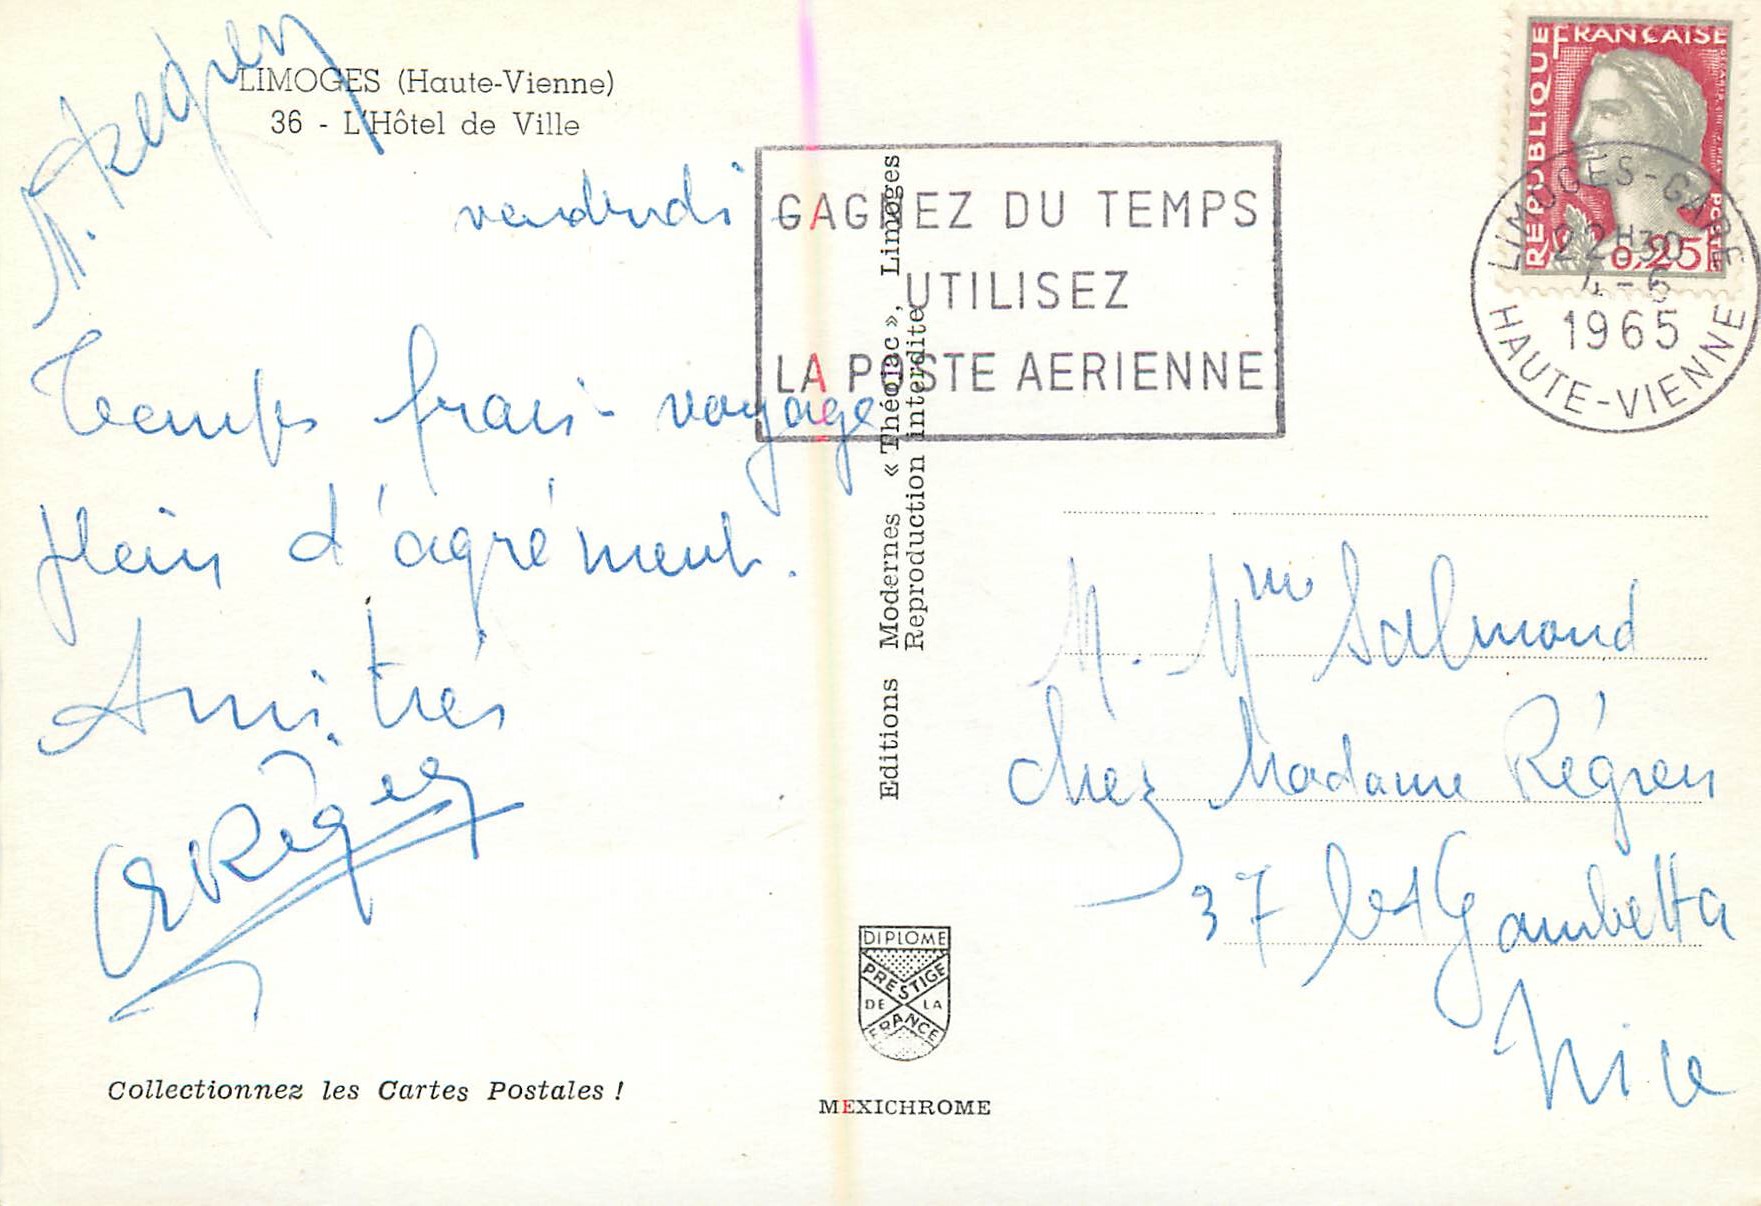 LIMOGES (Haute-Vienne)
36 - L'Hôtel de Ville
vendredi
Temps frais - voyage
plein d'agrément.
Amitiés
Collectionnez les Cartes Postales !
Editions Modernes « Théojac », Limoges
Reproduction interdite
DIPLOME
PRESTIGE
DE LA
FRANCE
MEXICHROME
GAGNEZ DU TEMPS
UTILISEZ
LA POSTE AERIENNE
REPUBLIQUE FRANÇAISE
POSTES
0,25F
LIMOGES-GARE
22H30
4-6
1965
HAUTE-VIENNE
M. Mme Salmond
chez Madame Régren
37 Gambetta
Nice